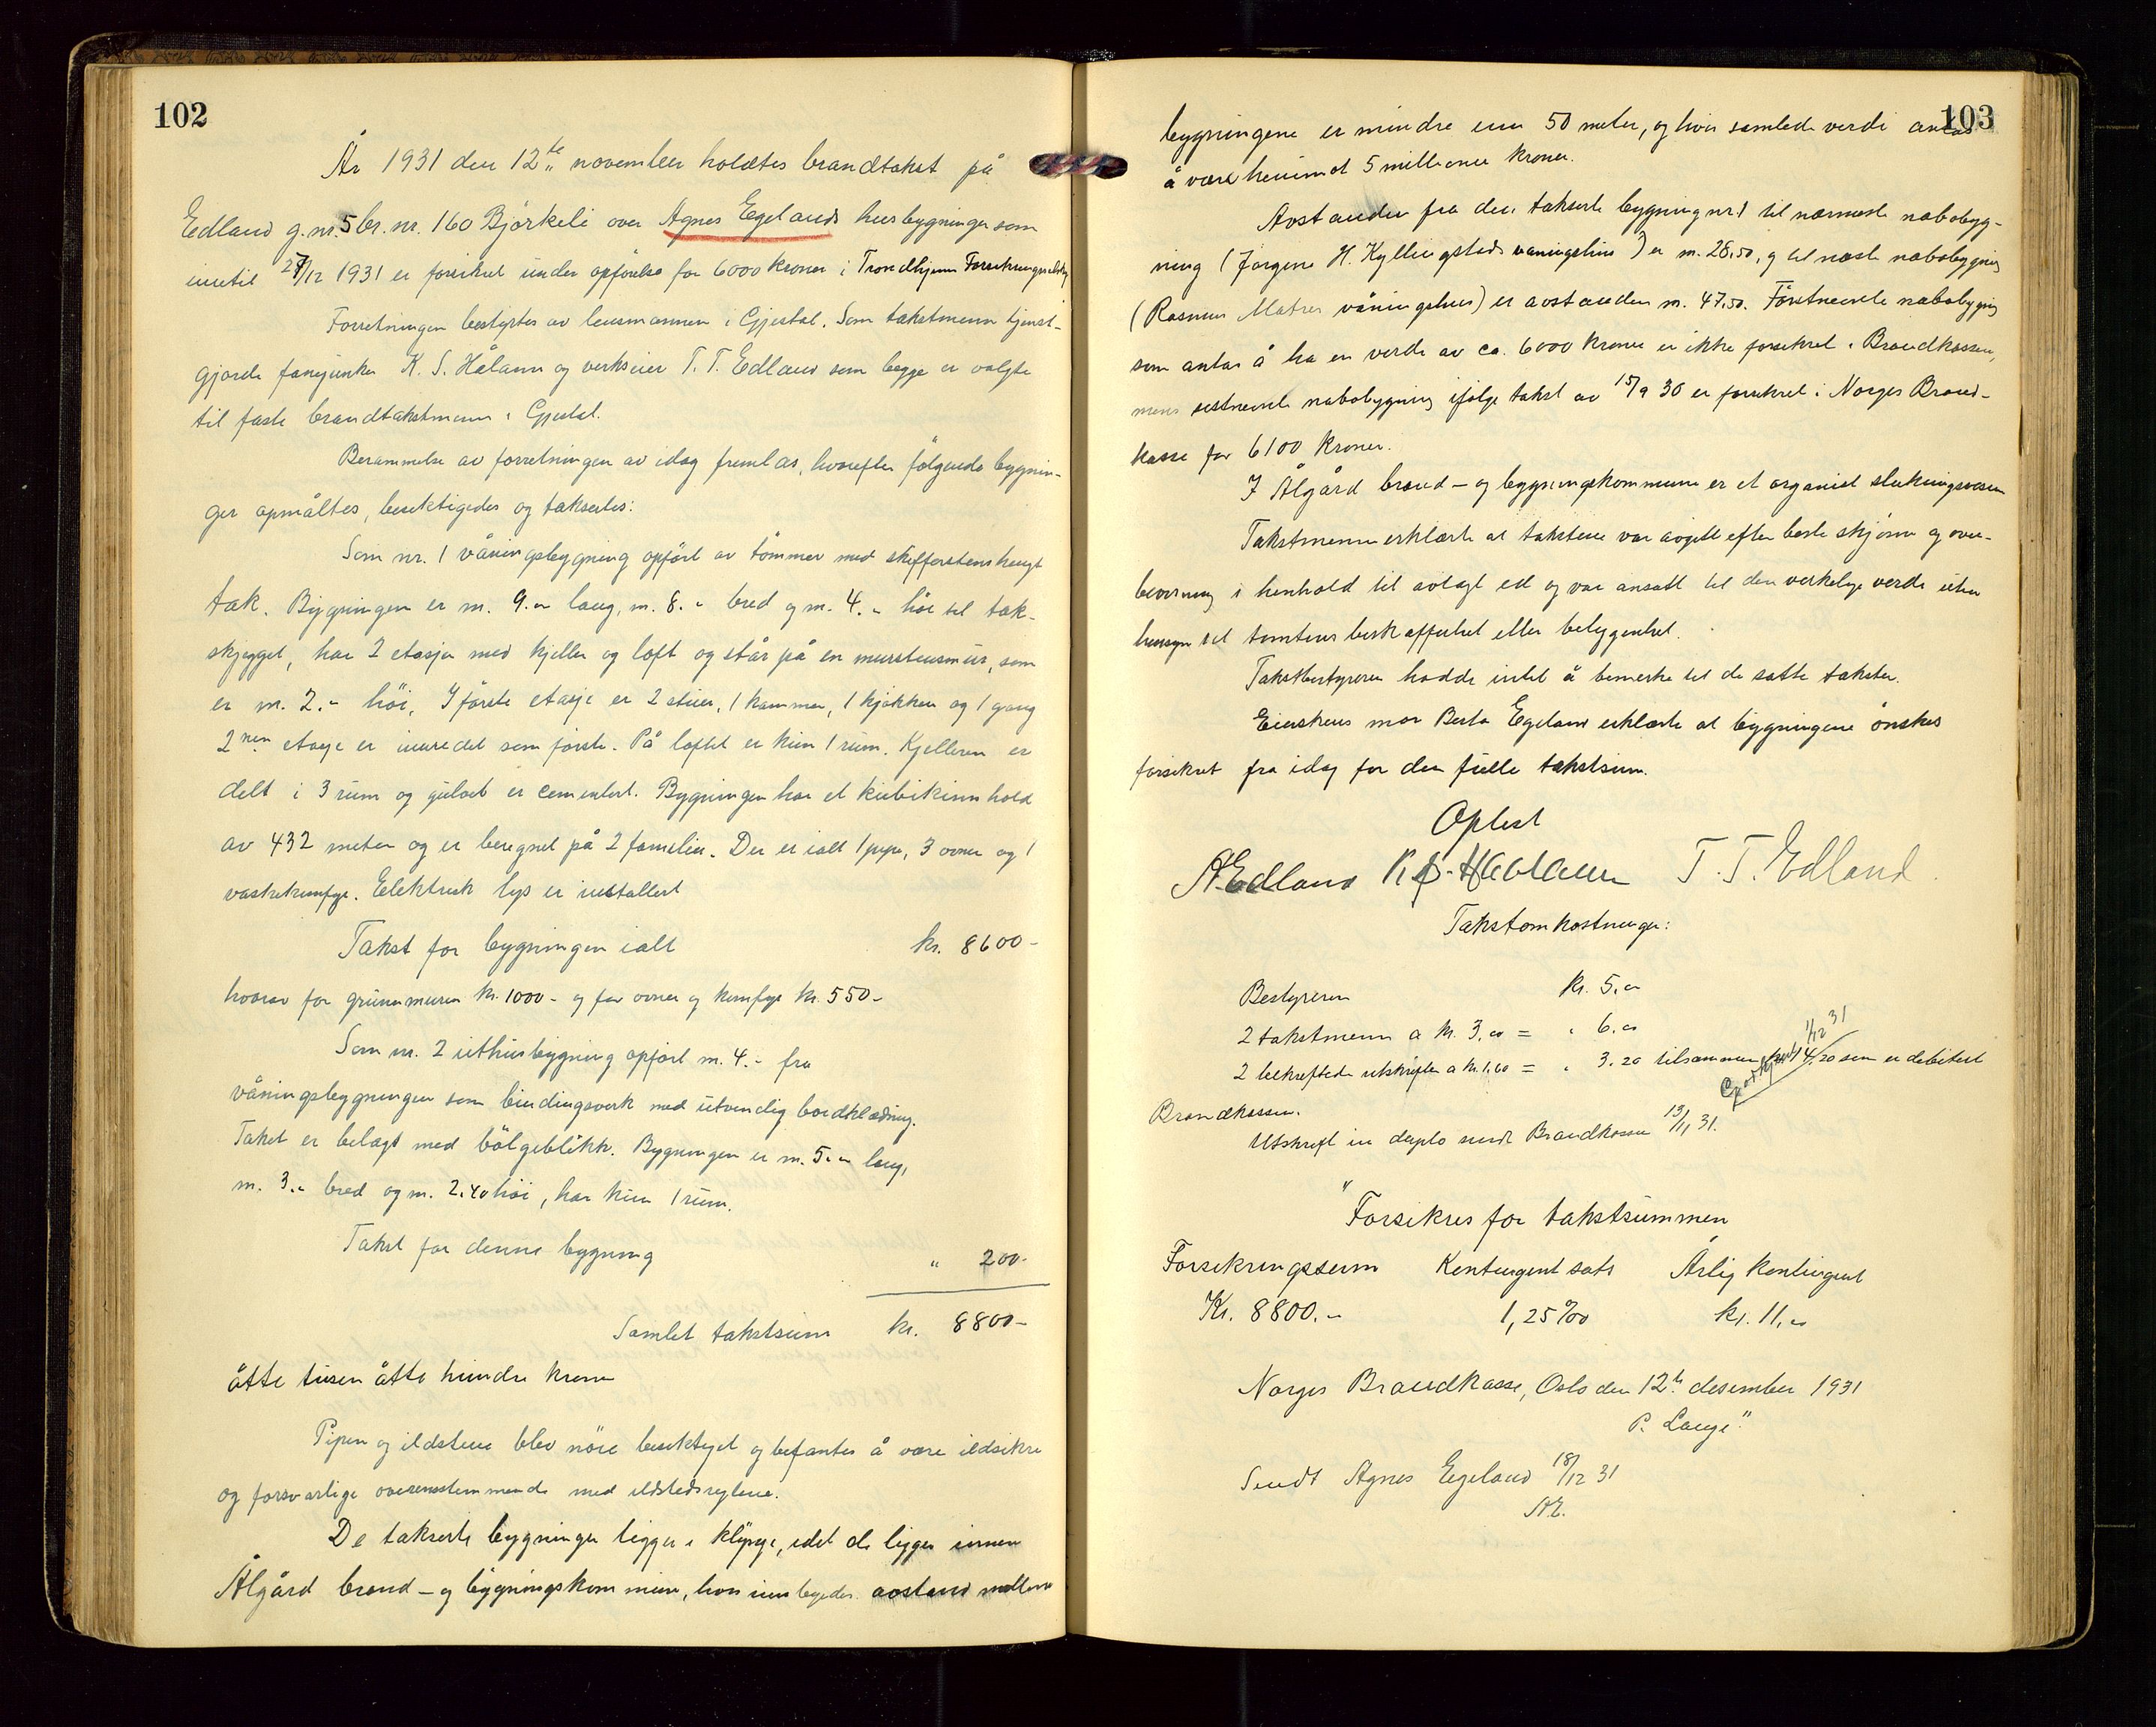 102
År 1931 den 12te november holdtes brandtakst på
Edland g.nr. 5 br. nr. 160 Bjørkeli over Agnes Egelands husbygninger som
inntil 27/12 1931 er forsikret under opførelse for 6000 kroner i Trondhjems Forsikringsselskap
Forretningen bestyrtes av lensmannen i Gjestal. Som takstmenn tjenst-
gjorde fanejunker K. S. Håland og verkseier T. T. Edland som begge er valgte
til faste brandtakstmenn i Gjestal.
Berammelse av forretningen av idag fremlas, hvorefter følgende bygnin-
ger opmåltes, besiktigedes og taksertes:
Som nr. 1 våningsbygning opført av tømmer med skifferstenshengt
tak. Bygningen er m. 9.- lang, m. 8.- bred og m. 4.- høi til tak-
skjegget, har 2 etasjer med kjeller og loft og står på en murstensmur, som
er m. 2.- høi. I første etasje er 2 stuer, 1 kammer, 1 kjøkken og 1 gang
2nen etasje er innredet som første. På loftet er kun 1 rum. Kjelleren er
delt i 3 rum og gulvet er cementert. Bygningen har et kubikinnhold
av 432 meter og er beregnet på 2 familier. Der er ialt 1 pipe, 3 ovner og 1
vaskekomfyr. Elektrisk lys er installert
Takst for bygningen ialt kr. 8600-
hvorav for grunnmuren kr. 1000- og for ovner og komfyr kr. 550-
Som nr. 2 uthusbygning opført m. 4.- fra
våningsbygningen som bindingsverk med utvendig bordklædning.
Taket er belagt med bølgeblikk. Bygningen er m. 5.- lang,
m. 3.- bred og m. 2,40 høi, har kun 1 rum.
Takst for denne bygning " 200-
Samlet takstsum kr. 8800-
åtte tusen åtte hundre kroner
Pipen og ildstene blev nøie besiktiget og befantes å være ildsikre
og forsvarlige overensstemmende med ildstedsreglene.
De takserte bygninger ligger i klynge, idet de ligger innen
Ålgård brand- og bygningskommune, hvis innbyrdes avstand mellem
103
bygningene er mindre enn 50 meter, og hvis samlede verdi antas
å være henimot 5 millioner kroner.
Avstanden fra den takserte bygning nr. 1 til nærmeste nabobyg-
ning (Jørgine H. Kyllingstads våningshus) er m. 28,50, og til næste nabobygning
(Rasmus Matres våningshus) er avstanden m. 47,50. Førstnevnte nabobygning
som antas å ha en verdi av ca. 6000 kroner er ikke forsikret i Brandkassen,
mens sistnevnte nabobygning ifølge takst av 15/9 30 er forsikret i Norges Brand-
kasse for 6100 kroner.
I Ålgård brand- og bygningskommune er et organisert slukningsvesen
Takstmennene erklærte at takstene var avgitt efter beste skjønn og over-
bevisning i henhold til avlagt ed og var ansatt til den virkelige verdi uten
hensyn til tomtens beskaffenhet eller beliggenhet.
Takstbestyreren hadde intet å bemerke til de satte takster.
Eierskens mor Berta Egeland erklærte at bygningene ønskes
forsikret fra idag for den fulle takstsum.
Oplest
A Edland K S. Haaland T. T. Edland
Takstomkostninger:
Bestyreren kr. 5.-
2 takstmenn a kr. 3.- = " 6.-
2 bekreftede utskrifter a kr. 1,60 = " 3.20 tilsammen kr. 14,20 som er debitert
1/12 31
Brandkassen.
Utskrift in duplo sendt Brandkassen 13/11 31.
"Forsikres for takstsummen
Forsikringssum Kontingentsats Årlig kontingent
Kr. 8800.- 1,25 ‰ kr. 11.-
Norges Brandkasse, Oslo den 12te desember 1931
P. Lange"
Sendt Agnes Egeland 18/12 31
AE.